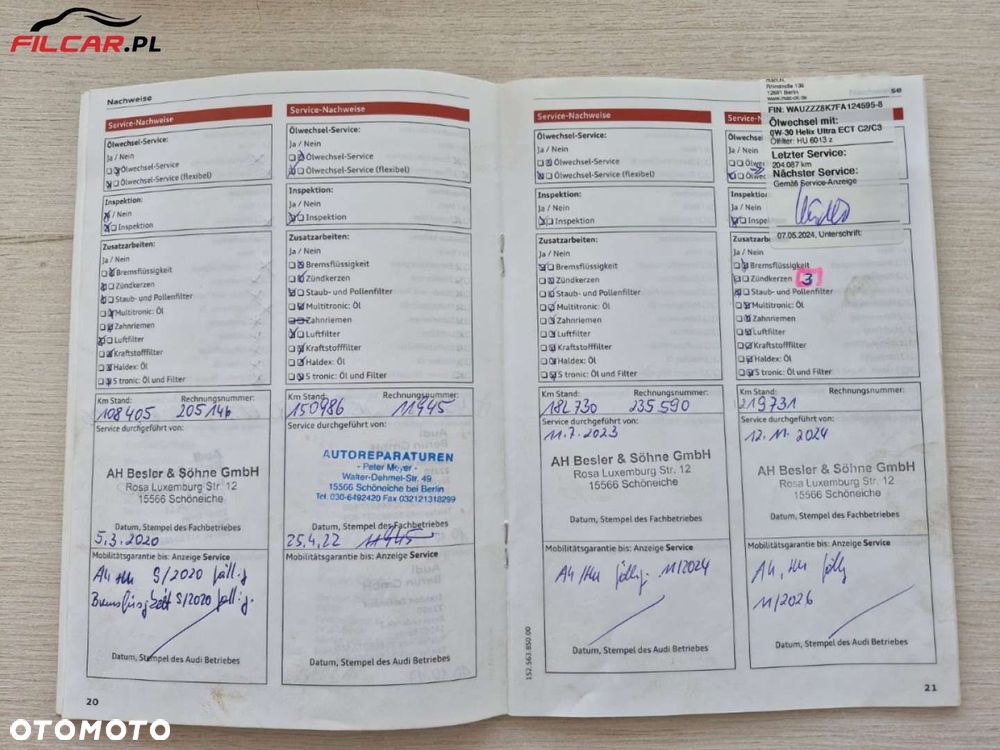 FILCAR.PL
Nachweise
Service-Nachweise
Ölwechsel-Service:
Ja / Nein
Ölwechsel-Service
Ölwechsel-Service (flexibel)
Inspektion:
Ja / Nein
Inspektion
Zusatzarbeiten:
Ja / Nein
Bremsflüssigkeit
Zündkerzen
Staub- und Pollenfilter
Multitronic: Öl
Zahnriemen
Luftfilter
Kraftstofffilter
Haldex: Öl
S tronic: Öl und Filter
Km Stand: Rechnungsnummer:
108405 205146
Service durchgeführt von:
AH Besler & Söhne GmbH
Rosa Luxemburg Str. 12
15566 Schöneiche
Datum, Stempel des Fachbetriebes
5.3.2020
Mobilitätsgarantie bis: Anzeige Service
AU HU 9/2020 fällig
Bremsflüssigkeit 9/2020 fällig.
Datum, Stempel des Audi Betriebes
20
Service-Nachweise
Ölwechsel-Service:
Ja / Nein
Ölwechsel-Service
Ölwechsel-Service (flexibel)
Inspektion:
Ja / Nein
Inspektion
Zusatzarbeiten:
Ja / Nein
Bremsflüssigkeit
Zündkerzen
Staub- und Pollenfilter
Multitronic: Öl
Zahnriemen
Luftfilter
Kraftstofffilter
Haldex: Öl
S tronic: Öl und Filter
Km Stand: Rechnungsnummer:
150986 11945
Service durchgeführt von:
AUTOREPARATUREN
- Peter Meyer -
Walter-Dehmel-Str. 49
15566 Schöneiche bei Berlin
Tel. 030-6492420 Fax 032121318299
Datum, Stempel des Fachbetriebes
25.4.22 11945
Mobilitätsgarantie bis: Anzeige Service
Datum, Stempel des Audi Betriebes
Nachweise
Service-Nachweise
Ölwechsel-Service:
Ja / Nein
Ölwechsel-Service
Ölwechsel-Service (flexibel)
Inspektion:
Ja / Nein
Inspektion
Zusatzarbeiten:
Ja / Nein
Bremsflüssigkeit
Zündkerzen
Staub- und Pollenfilter
Multitronic: Öl
Zahnriemen
Luftfilter
Kraftstofffilter
Haldex: Öl
S tronic: Öl und Filter
Km Stand: Rechnungsnummer:
182730 235590
Service durchgeführt von:
11.7.2023
AH Besler & Söhne GmbH
Rosa Luxemburg Str. 12
15566 Schöneiche
Datum, Stempel des Fachbetriebes
Mobilitätsgarantie bis: Anzeige Service
AU/HU fällig. 11/2024
Datum, Stempel des Audi Betriebes
152.563.850.00
12681 Berlin
FIN: WAUZZZ8K7FA124595-8
Ölwechsel mit:
0W-30 Helix Ultra ECT C2/C3
Ölfilter: HU 6013 z
Letzter Service:
204.087 km
Nächster Service:
Gemäß Service-Anzeige
07.05.2024, Unterschrift:
Ja / Nein
Zusatzarbeiten:
Ja / Nein
Bremsflüssigkeit
Zündkerzen 3
Staub- und Pollenfilter
Multitronic: Öl
Zahnriemen
Luftfilter
Kraftstofffilter
Haldex: Öl
S tronic: Öl und Filter
Km Stand: Rechnungsnummer:
219731
Service durchgeführt von:
12.11.2024
AH Besler & Söhne GmbH
Rosa Luxemburg Str. 12
15566 Schöneiche
Datum, Stempel des Fachbetriebes
Mobilitätsgarantie bis: Anzeige Service
AU, HU fällig
11/2026
Datum, Stempel des Audi Betriebes
21
OTOMOTO